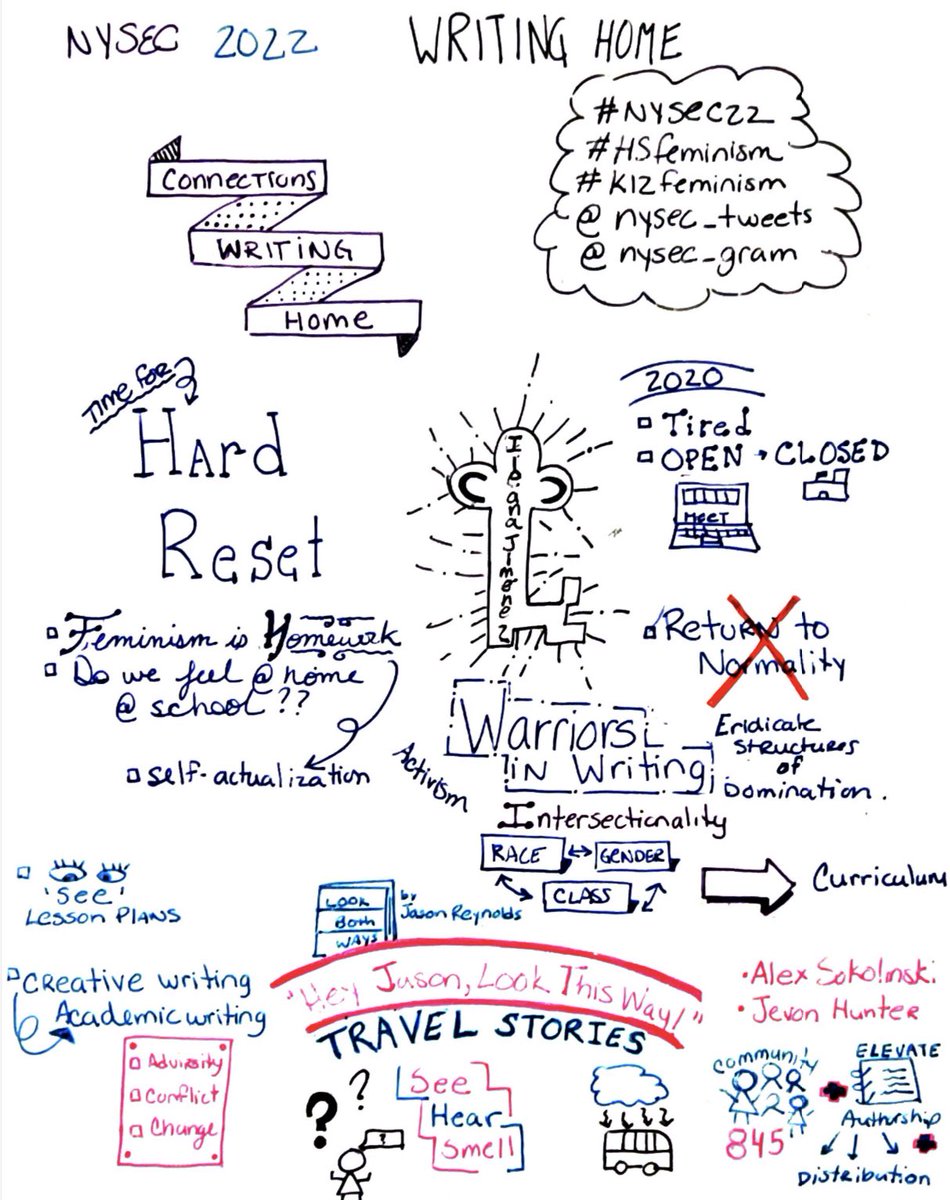 NYSEC 2022
WRITING HOME
#NYSEC22
#HSfeminism
#K12feminism
@nysec_tweets
@nysec_gram
Connections
WRITING
Home
Time for
Hard
Reset
Feminism is Homework
Do we feel @ home
@ school??
self-actualization
Ileana Jimenez
2020
Tired
OPEN → CLOSED
MEET
Return to
Normality
Warriors
in Writing
Activism
Eridicate
structures
of
Domination.
Intersectionality
RACE ↔ GENDER
CLASS
Curriculum
'See'
Lesson Plans
Look
Both
Ways
by
Jason Reynolds
Creative writing
Academic writing
Adversity
Conflict
Change
"Hey Jason, Look This Way!"
TRAVEL STORIES
? ?
?
See
Hear
Smell
• Alex Sokolinski
• Jevon Hunter
Community
845
ELEVATE
Authorship
Distribution